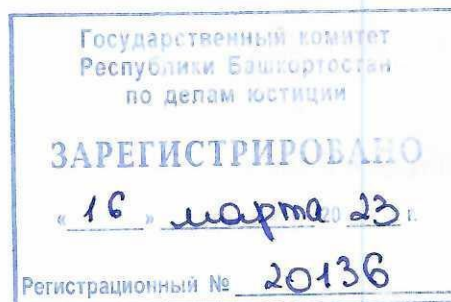 Государственный комитет
Республики Башкортостан
по делам юстиции
ЗАРЕГИСТРИРОВАНО
« 16 » марта 20 23 г.
Регистрационный № 20136